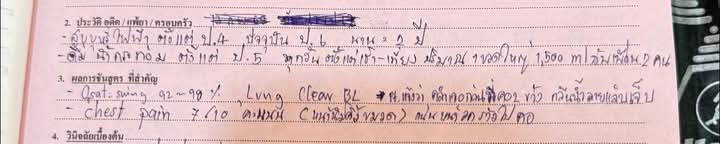 2. ประวัติ อดีต / แพ้ยา / ครอบครัว
- สูบบุหรี่ไฟฟ้า ตั้งแต่ ป.4 ปัจจุบัน ป.6 นาน = 2 ปี
- ดื่ม น้ำกระท่อม ตั้งแต่ ป.5 ทุกวัน ตั้งแต่เช้า-เที่ยง ปริมาณ 1 ขวดใหญ่ 1,500 ml กับเพื่อน 2 คน
3. ผลการชันสูตร ที่สำคัญ
- O₂sat swing 92-98 %, Lung Clear BL กลืนน้ำลายแล้วเจ็บ
- chest pain 7/10 คะแนน
4. วินิจฉัยเบื้องต้น